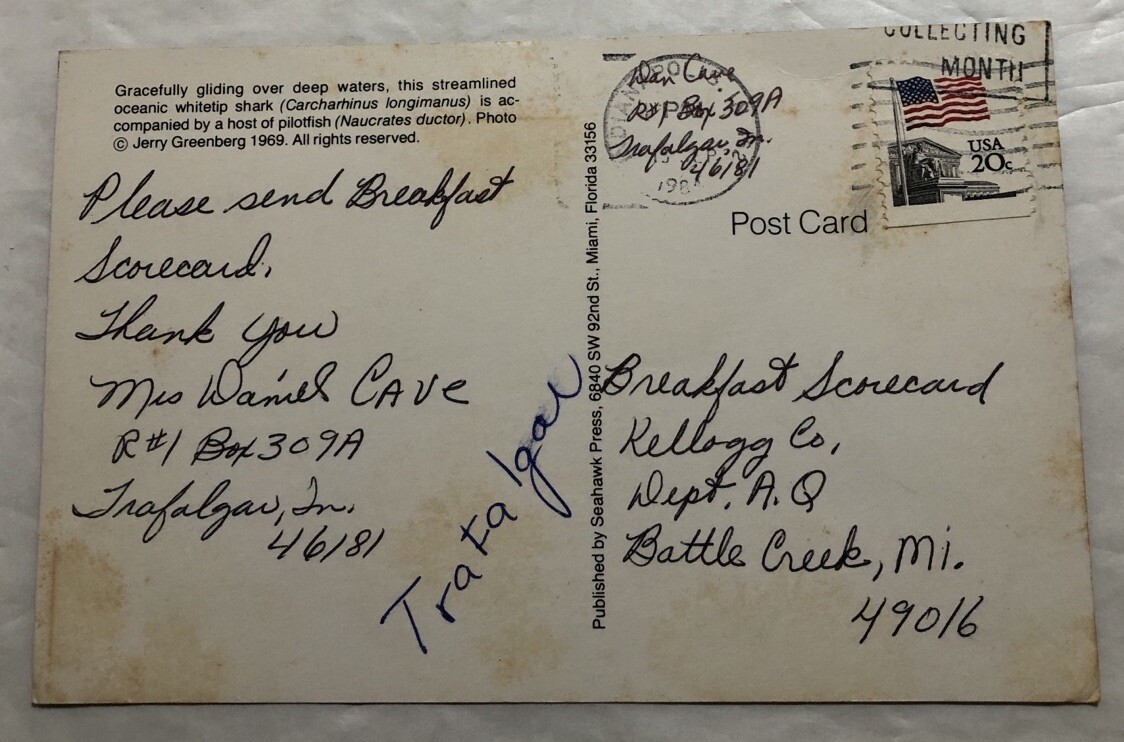 Gracefully gliding over deep waters, this streamlined
oceanic whitetip shark (Carcharhinus longimanus) is ac-
companied by a host of pilotfish (Naucrates ductor). Photo
© Jerry Greenberg 1969. All rights reserved.
Please send Breakfast
Scorecard.
Thank you
Mrs Daniel CAVE
R#1 Box 309A
Trafalgar, In.
46181
Trafalgar
Published by Seahawk Press, 6840 SW 92nd St., Miami, Florida 33156
Dan Cave
R#1 Box 309A
Trafalgar, In.
46181
COLLECTING
MONTH
USA
20c
Post Card
Breakfast Scorecard
Kellogg Co,
Dept. A.Q
Battle Creek, Mi.
49016